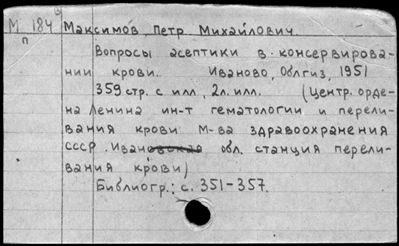 М 184 Максимов, Петр Михайлович.
п
Вопросы асептики в консервирова-
нии крови. Иваново, Облгиз, 1951
359 стр. с илл, 2л. илл. (Центр. орде-
на Ленина ин-т гематологии и перели-
вания крови М-ва здравоохранения
СССР. Ивановская обл. станция перели-
вания крови)
Библиогр: с. 351-357.